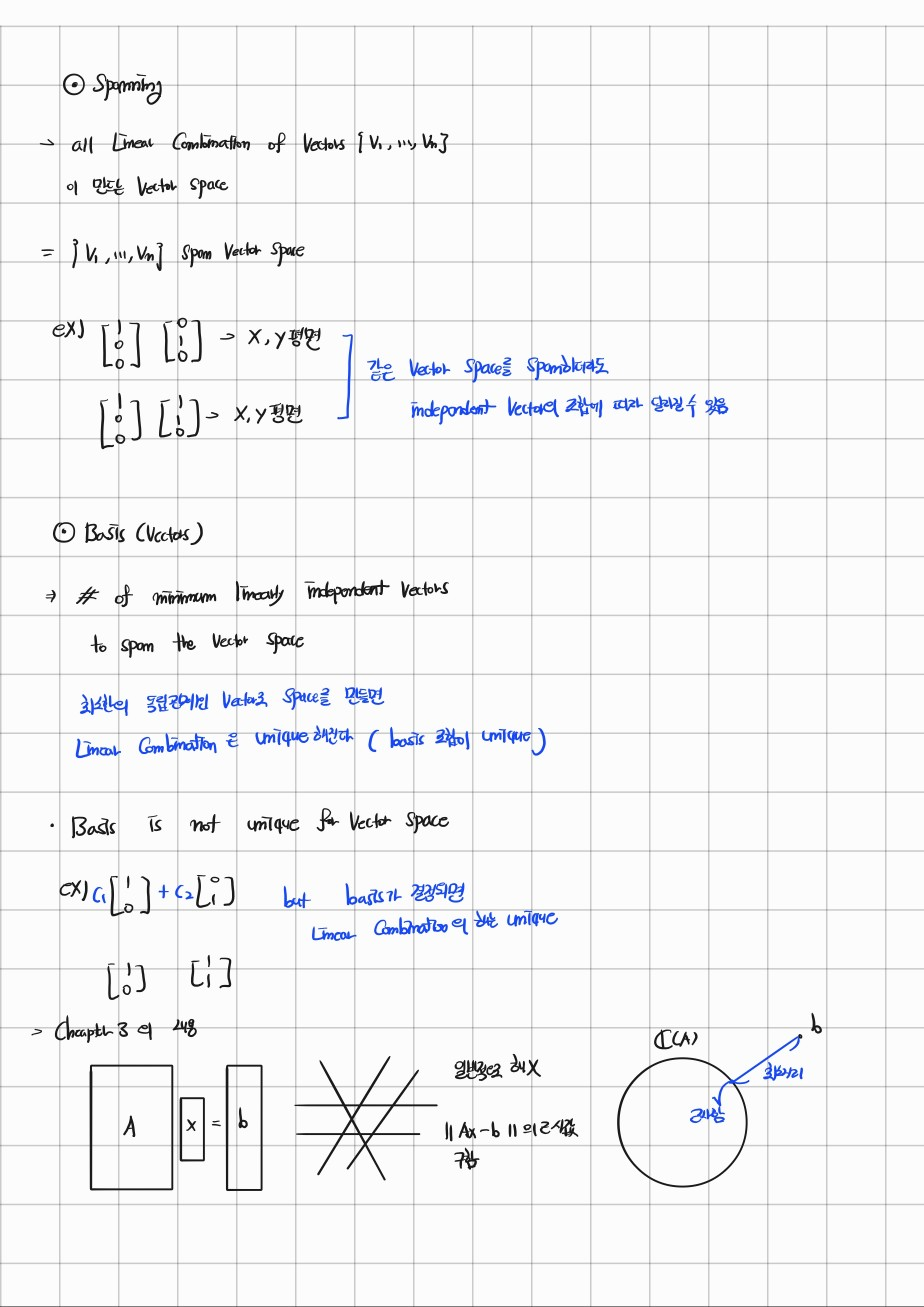 ⊙ Spanning
→ all Linear Combination of Vectors {V₁, ..., Vₙ}
이 만드는 Vector space
= {V₁, ..., Vₙ} span Vector space
ex) [1 0 0] [0 1 0] → X, Y 평면
같은 Vector space를 span하더라도
[1 0 0] [1 1 0] → X, Y 평면
independent Vector의 조합에 따라 달라질 수 있음
⊙ Basis (Vectors)
⇒ # of minimum linearly independent Vectors
to span the Vector space
최소한의 독립관계인 Vector로 space를 만들면
Linear Combination 은 unique 해진다 ( basis 조합이 unique )
· Basis is not unique for Vector space
ex) C₁ [1 0] + C₂ [0 1]
but basis가 결정되면
Linear Combinatio의 해는 unique
[1 0] [1 1]
⇒ Cheapth 3 의 내용
A x = b
일반적으로 해 X
|| Ax - b || 의 근사값
구함
C(A)
b
최단거리
근사함